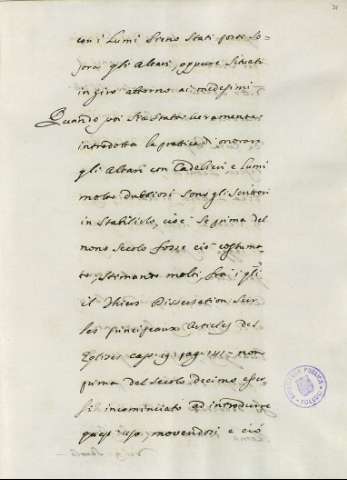 con i Lumi sieno stati posti so-
pra gli Altari, oppure situati
in giro attorno ai medesimi
Quando poi sia stata veramente
introdotta la prattica di onorar
gli Altari con Cadelieri e Lumi
molto dubbiosi sono gli Scrittori
in stabilirlo, cioè se prima del
nono Secolo fosse ciò costuma-
to, stimando molti, fra i q.li
il Thiers Dissertation Sur
les principeaux Articles des
Eglises cap. 19 pag. non
prima del Secolo decimo esser-
si incominciato ad introdurre
quest uso, movendosi e ciò